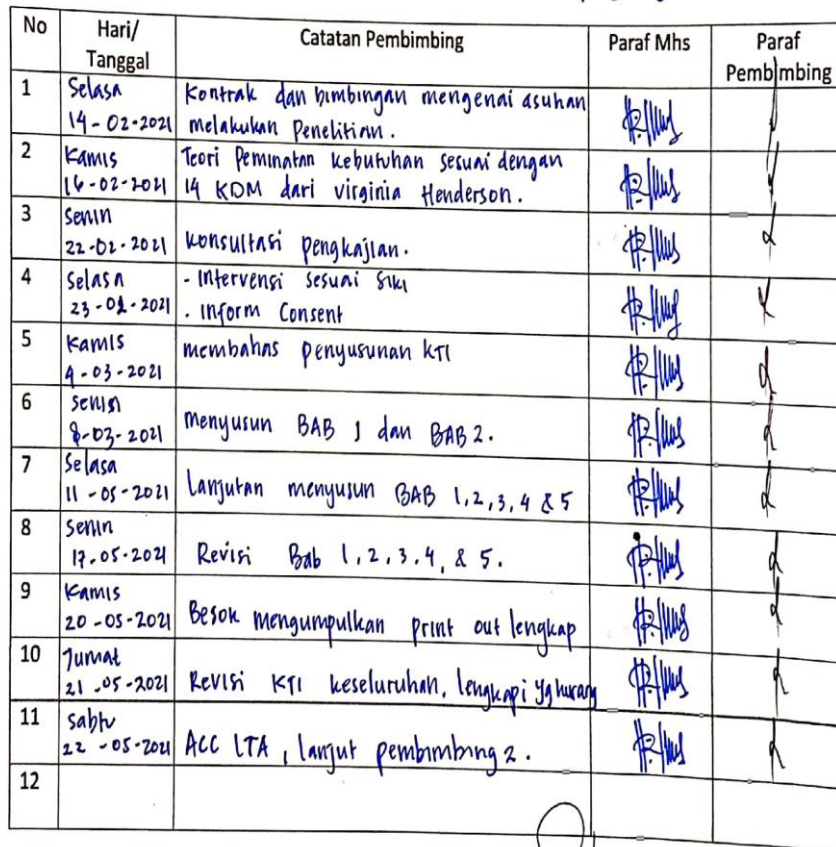 No Hari/ Catatan Pembimbing Paraf Mhs Paraf
Tanggal Pembimbing
1 Selasa Kontrak dan bimbingan mengenai asuhan
14-02-2021 melakukan Penelitian.
2 Kamis Teori Peminatan kebutuhan sesuai dengan
16-02-2021 14 KDM dari virginia Henderson.
3 Senin
22-02-2021 konsultasi pengkajian.
4 Selasa - Intervensi sesuai SIKI
23-02-2021 - Inform Consent
5 Kamis membahas penyusunan KTI
4-03-2021
6 Senin
8-03-2021 menyusun BAB 1 dan BAB 2.
7 Selasa
11-05-2021 Lanjutan menyusun BAB 1,2,3,4 & 5
8 Senin
17-05-2021 Revisi Bab 1,2,3,4, & 5.
9 Kamis
20-05-2021 Besok mengumpulkan print out lengkap
10 Jumat
21-05-2021 Revisi KTI keseluruhan, lengkapi yg kurang
11 Sabtu
22-05-2021 ACC LTA, lanjut pembimbing 2.
12